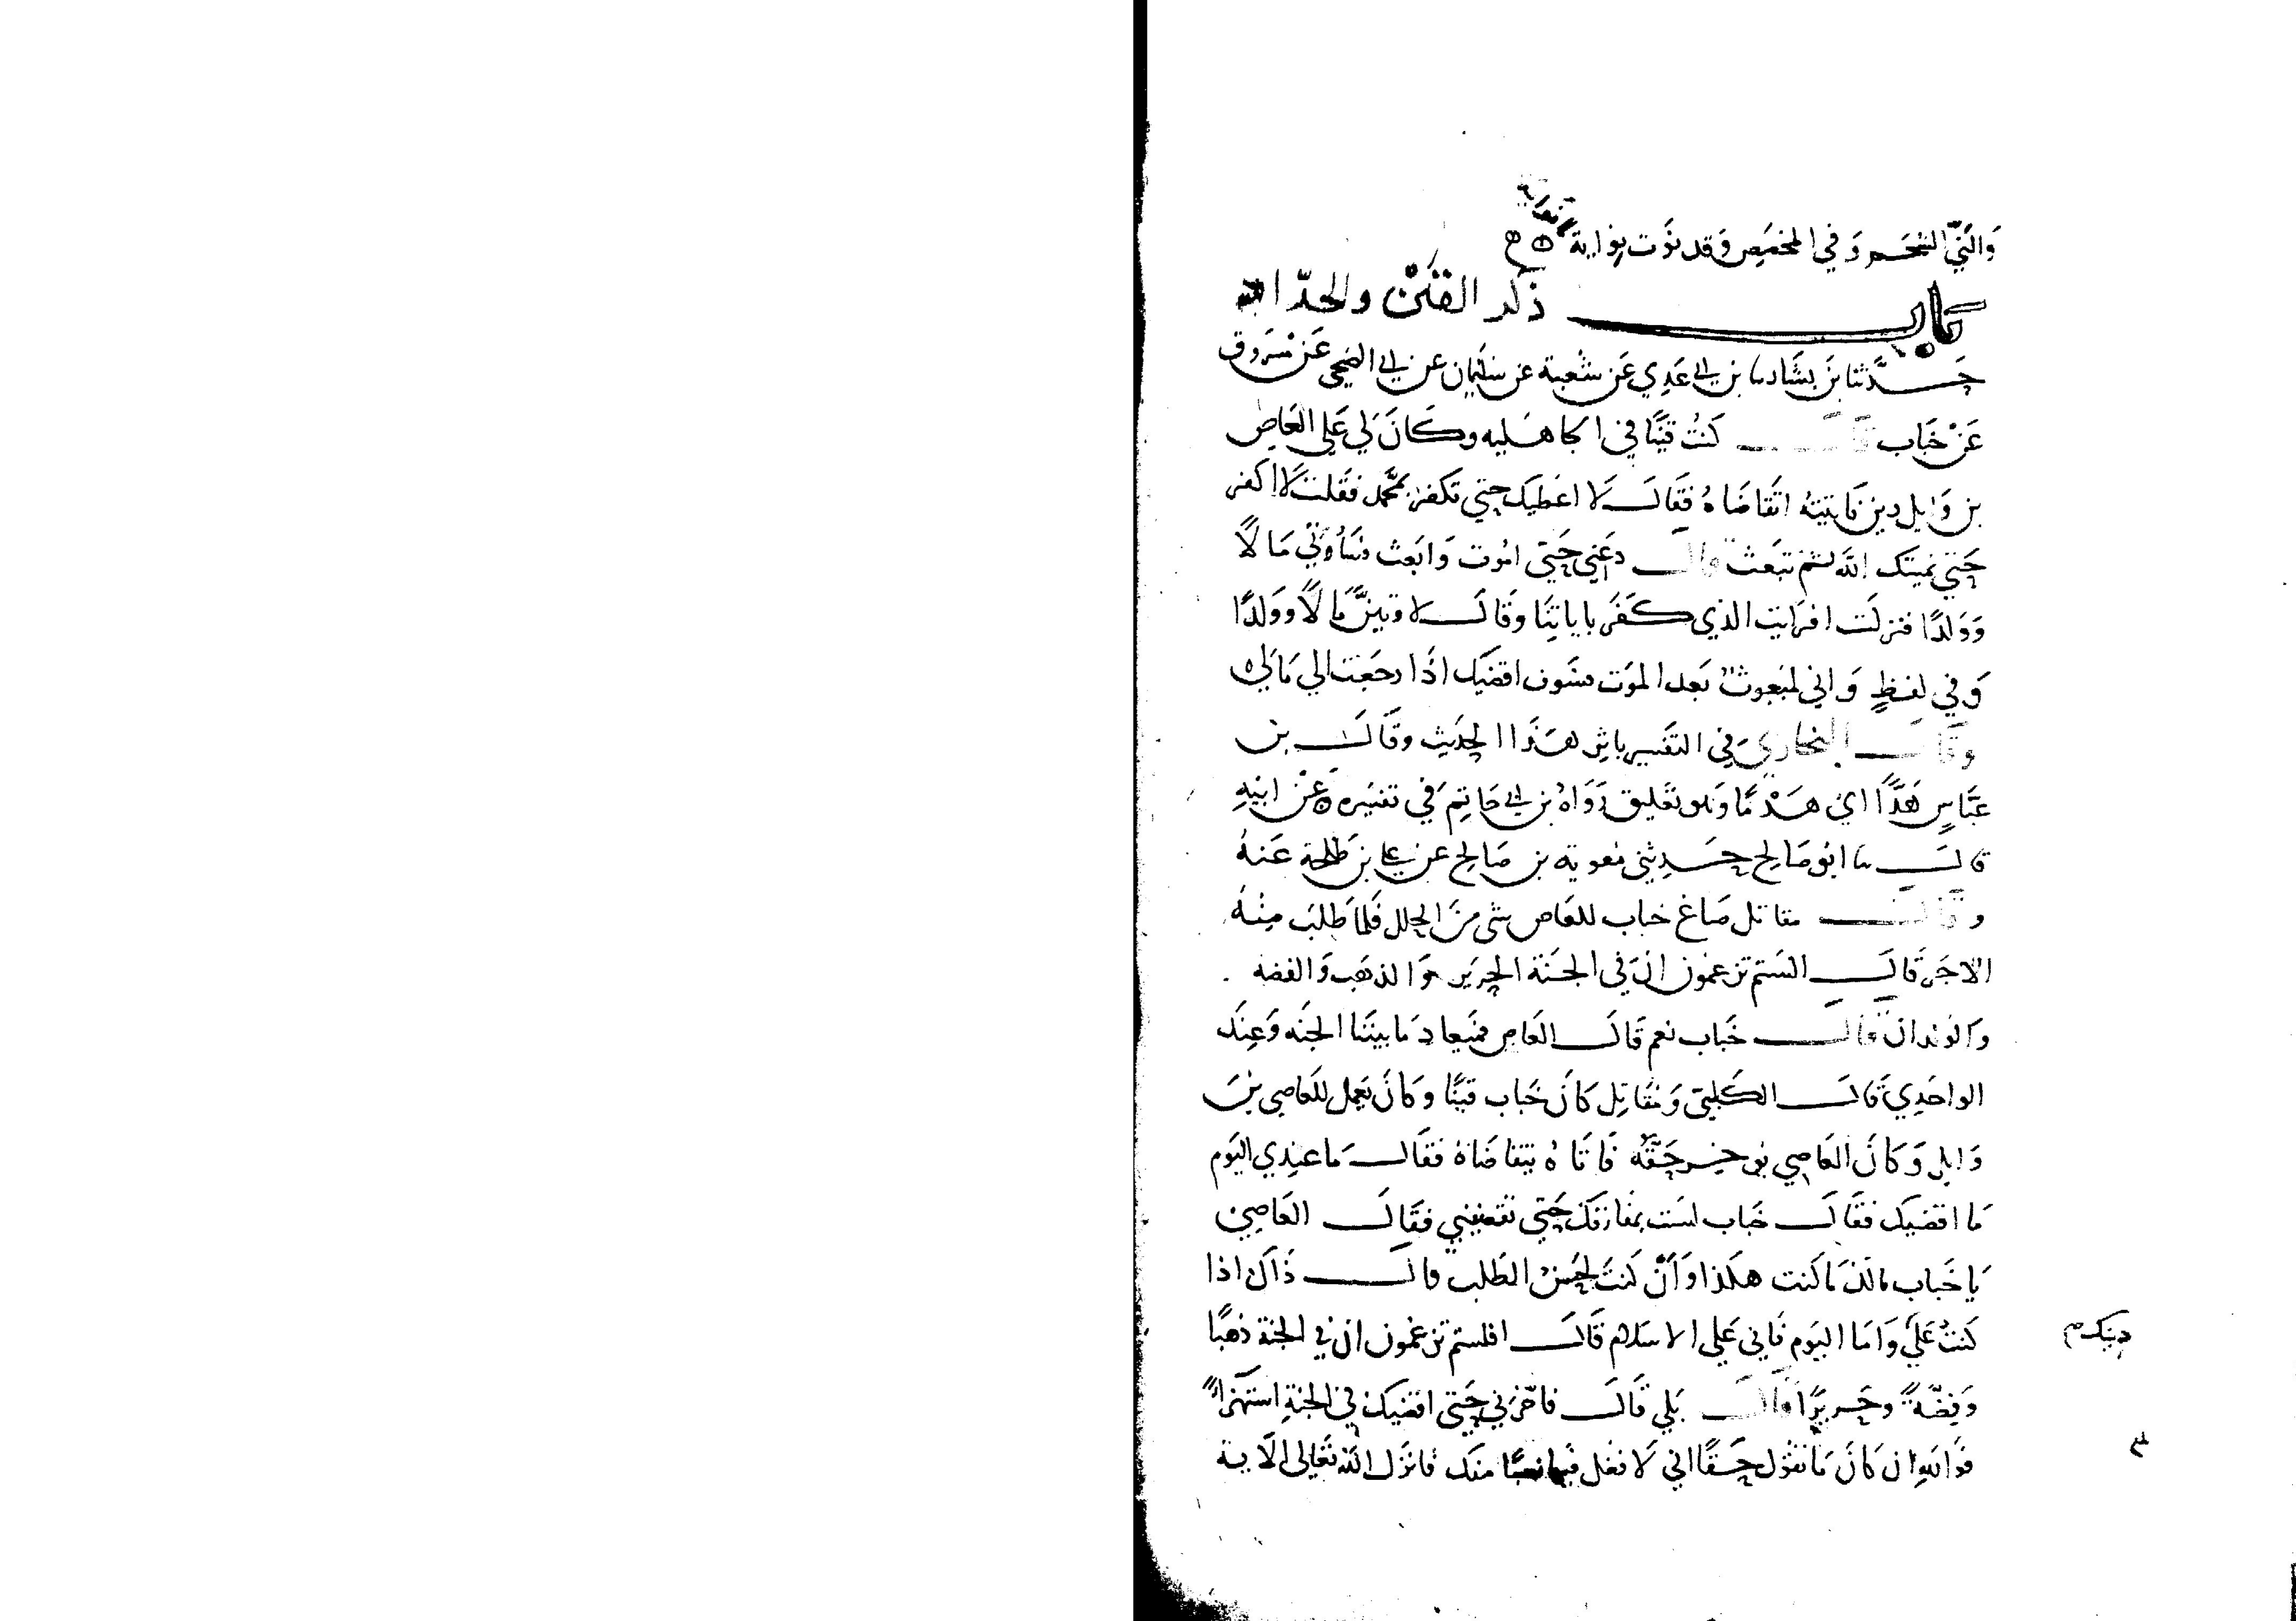 والني الشحم وفي المخصص وقد نوت بواية
باب ذكر القين والحداد
حدثنا بن بشار ثنا بن ابي عدي عن شعبة عن سليمان عن ابي الضحى عن مسروق
عن خباب قال كنت قينا في الجاهليه وكان لي علي العاص
بن وايل دين فاتيته اتقاضاه فقال لا اعطيك حتي تكفر بمحمد فقلت لا اكفر
حتي يميتك الله ثم تبعث قال دعني حتي اموت وابعث فساوتي مالا
وولدا فنزلت افرايت الذي كفر باياتنا وقال لاوتين مالا وولدا
وفي لفظ واني لمبعوث بعد الموت فسوف اقضيك اذا رجعت الي مالي
وقال البخاري في التفسير باثر هذا الحديث وقال بن
عباس هدا اي هدما وهو تعليق رواه بن ابي حاتم في تفسيره عن ابيه
قال ثنا ابو صالح حدثني معوية بن صالح عن علي بن طلحة عنه
وقال مقاتل صاغ خباب للعاص شي من الحلل فلما طلب منه
الاجر قال الستم تزعمون ان في الجنة الحرير والذهب والفضه
والولدان قال خباب نعم قال العاص فميعاد ما بيننا الجنه وعند
الواحدي قال الكلبي ومقاتل كان خباب قينا وكان يعمل للعاصي بن
وايل وكان العاصي يوخر حقه فاتاه يتقاضاه فقال ما عندي اليوم
ما اقضيك فقال خباب لست بمفارقك حتي تقضيني فقال العاصي
يا خباب مالك ما كنت هكذا وان كنت لحسن الطلب قال ذاك اذا
كنت علي واما اليوم فاني علي الاسلام قال افلستم تزعمون ان في الجنة ذهبا
دينك م
وفضة وحريرا قال بلي قال فاخرني حتي اقضيك في الجنة استهزاء
فوالله ان كان ما تقول حقا اني لافضل فيها نصيبا منك فانزل الله تعالى الاية
٣